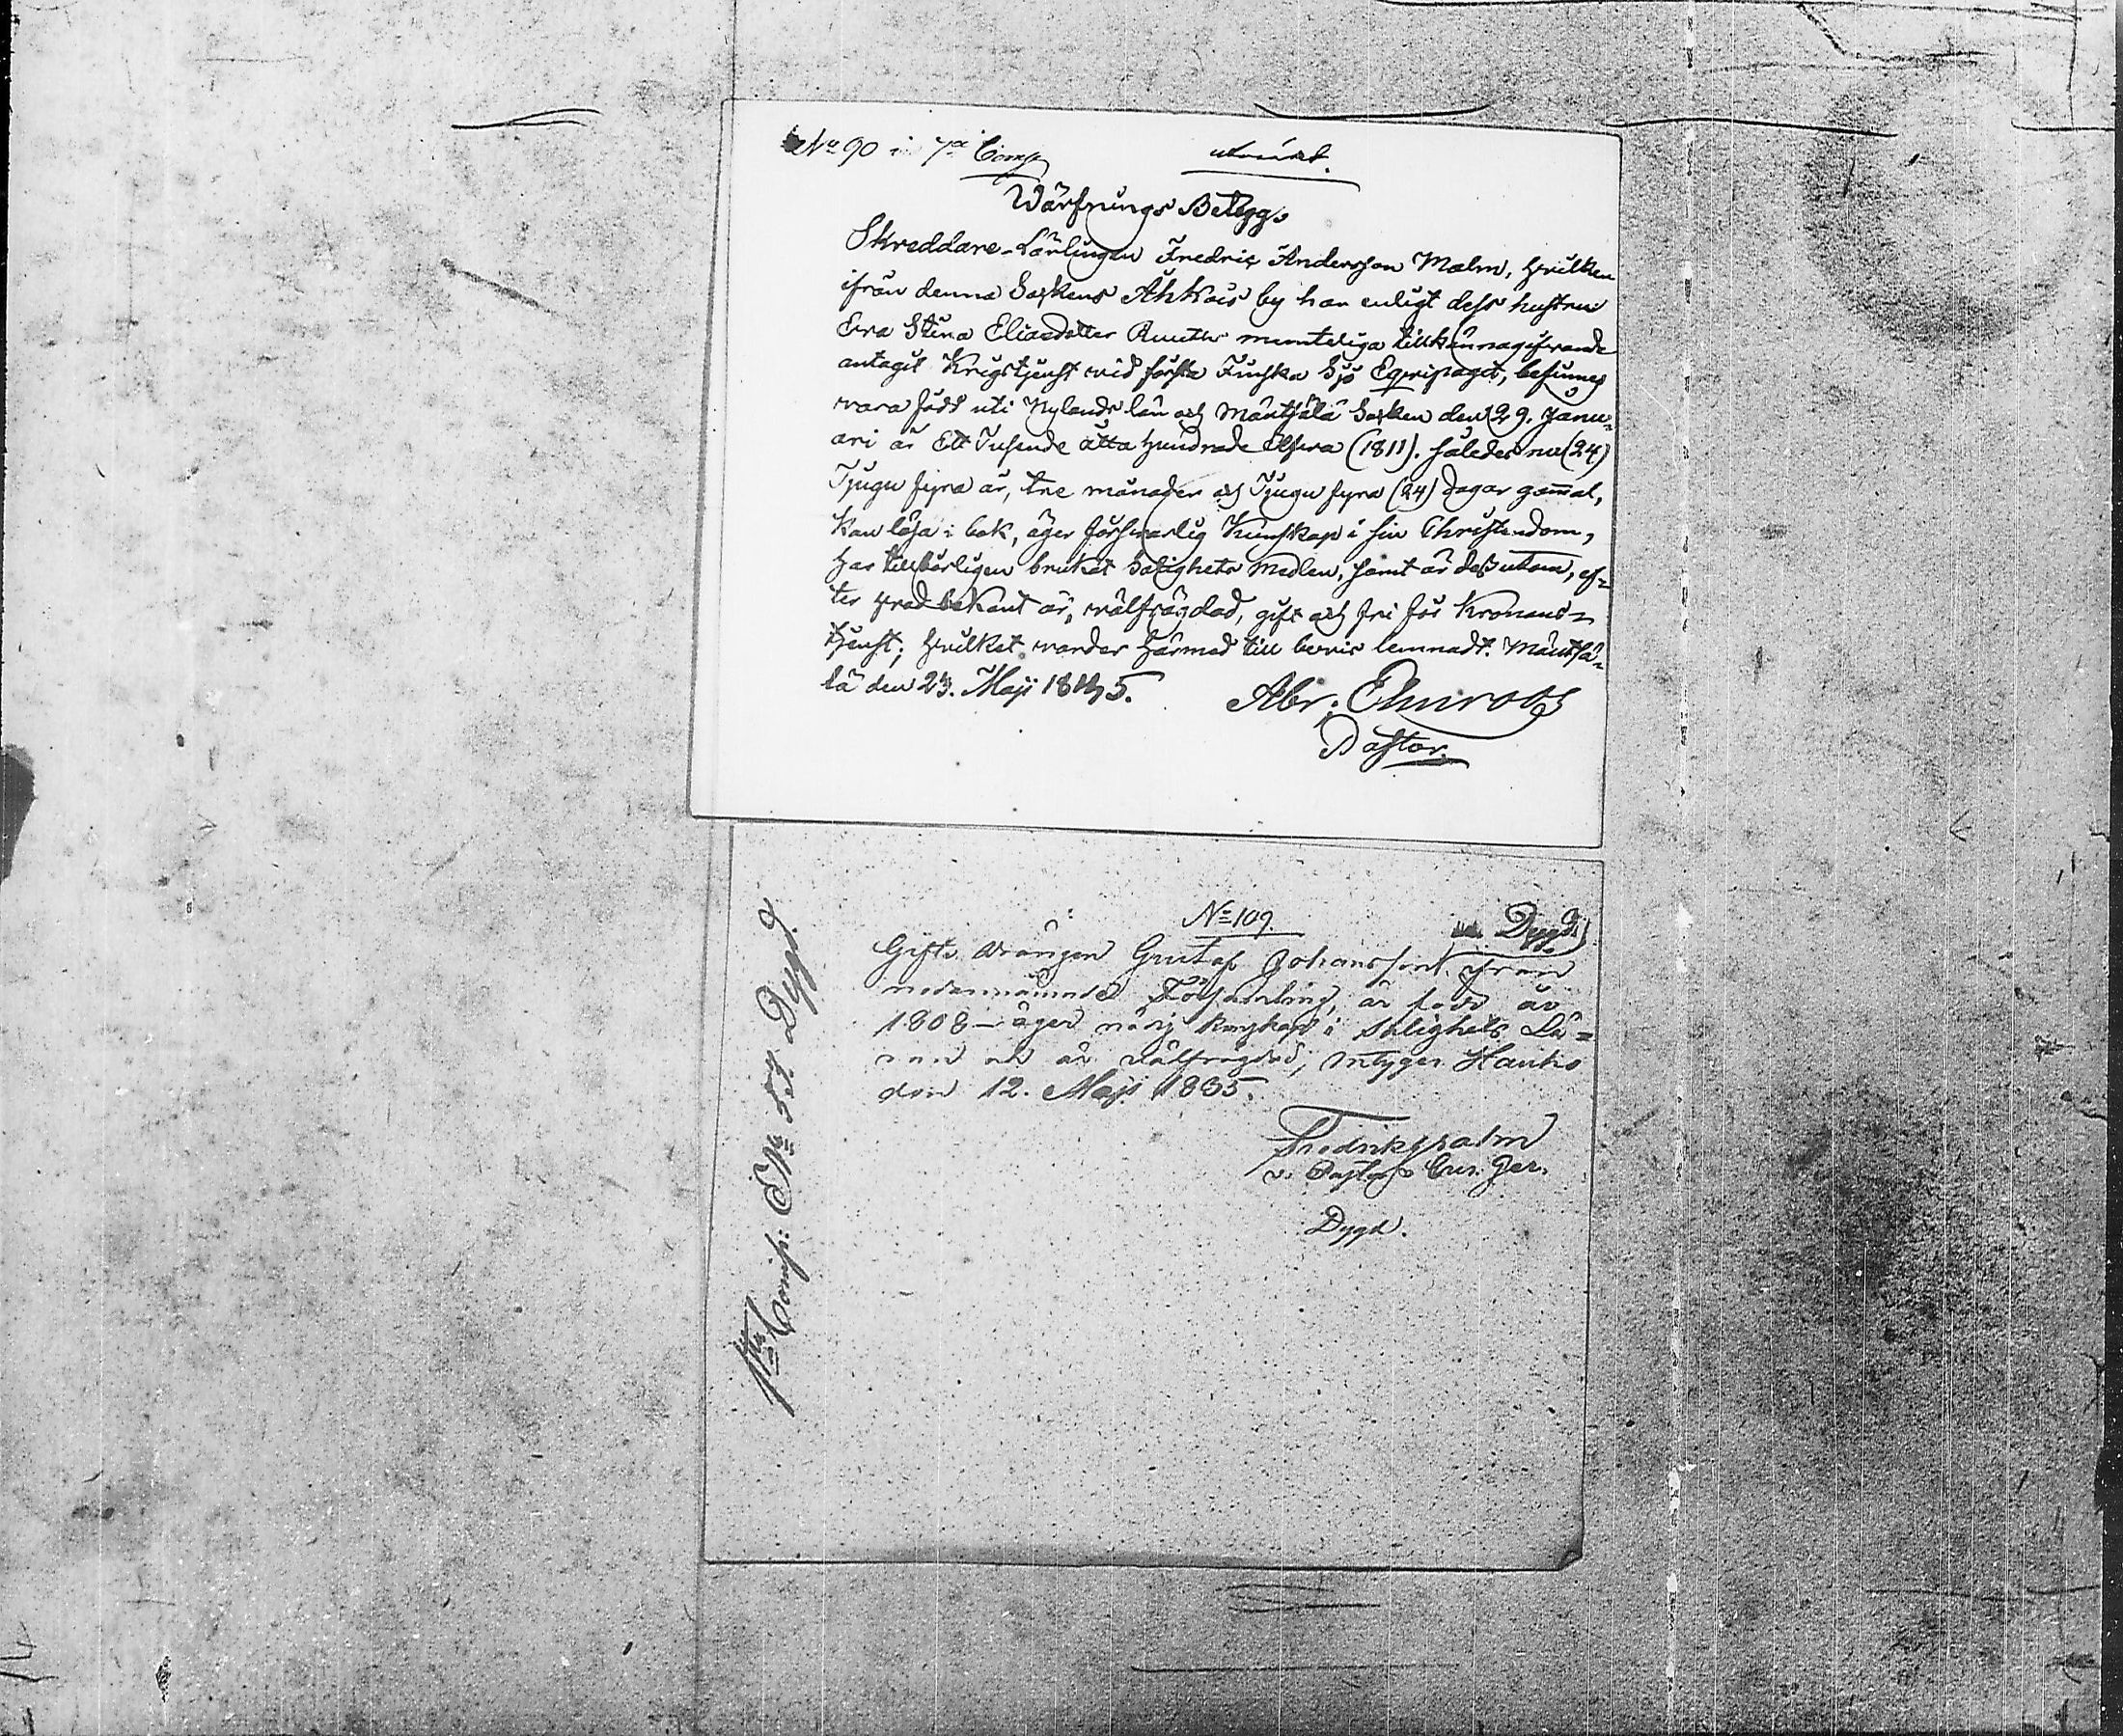 No 90 i 7de Comp
Wärfnings Belägg.
Skreddare-Lärlingen Fredric Andersson Malm, hvilken
ifrån denna Sockens Ahkois by har enligt dess hustru
Eva Stina Eliaedotter munteliga tillkännagifvande
antagit Krigstjenst vid första Finska Sjö Equipaget, befinnes
vara född uti Nylands län och Mäntsälä Socken den 29. Janu-
ari år Ett Tusende åtta hundrade Elfva (1811). således nu (24)
Tjugu fyra år, tre månader och Tjugu fyra (24) dagar gamal,
kan läsa i bok, äger försvarlig Kunskap i sin Christendom,
har tillbörligen brukat Salighets Medlen, samt är dessutom, ef-
ter hvad bekant är, välfrägdad, gift och fri för Kronans
tjenst; hvilket varder härmed till bevis lemnadt. Mäntsä-
lä den 23. Maji 1835.
Abr. Elmroth
Pastor.
No 109.
Dygd
Gifte drängen Gustaf Johansson från
nedannämnde Församling, är född år
1808 – äger nödig kunskap i Salighets Lä-
ran och är välfrägdad, intygar Hauho
den 12. Maji 1835.
Fredrik Palm
v. Pastor
Dygd.
1sta Comp: No 53. Dygd.